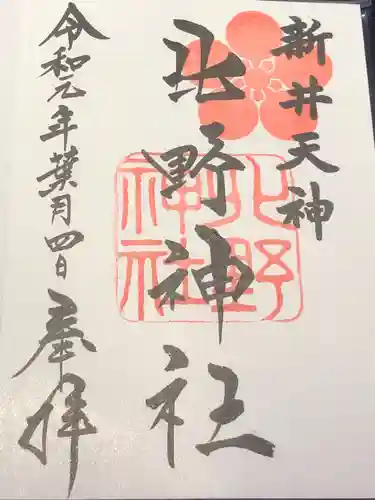 新井天神
北野神社
北野
神社
令和元年葉月四日
奉拝